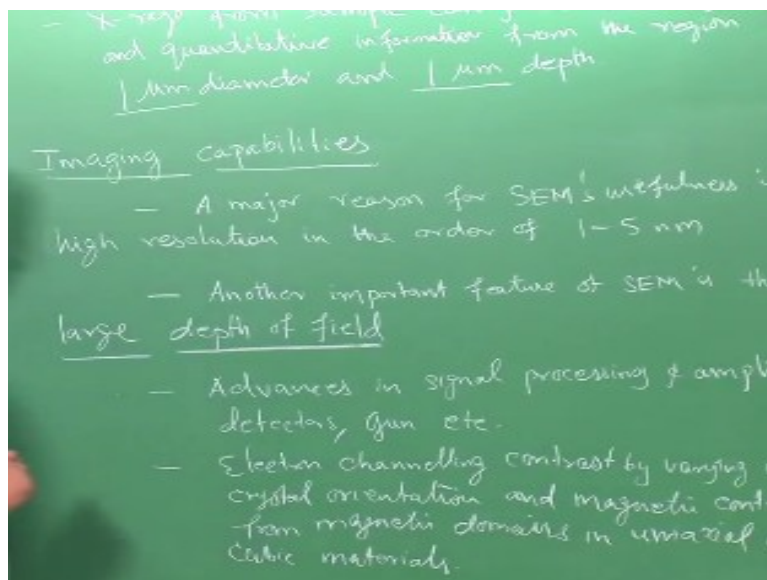 - X-rays from sample
and quantitative information from the region
1 µm diameter and 1 µm depth
Imaging capabilities
- A major reason for SEM's usefulness
high resolution in the order of 1-5 nm
- Another important feature of SEM is the
large depth of field
- Advances in signal processing & ampl
detectors, gun etc.
- Electron channelling contrast by varying
crystal orientation and magnetic cont
from magnetic domains in uniaxial
cubic materials.